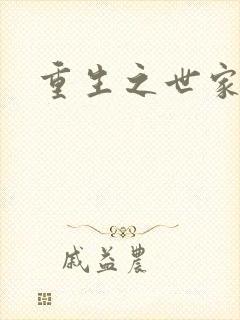 重生之世家
戚益農